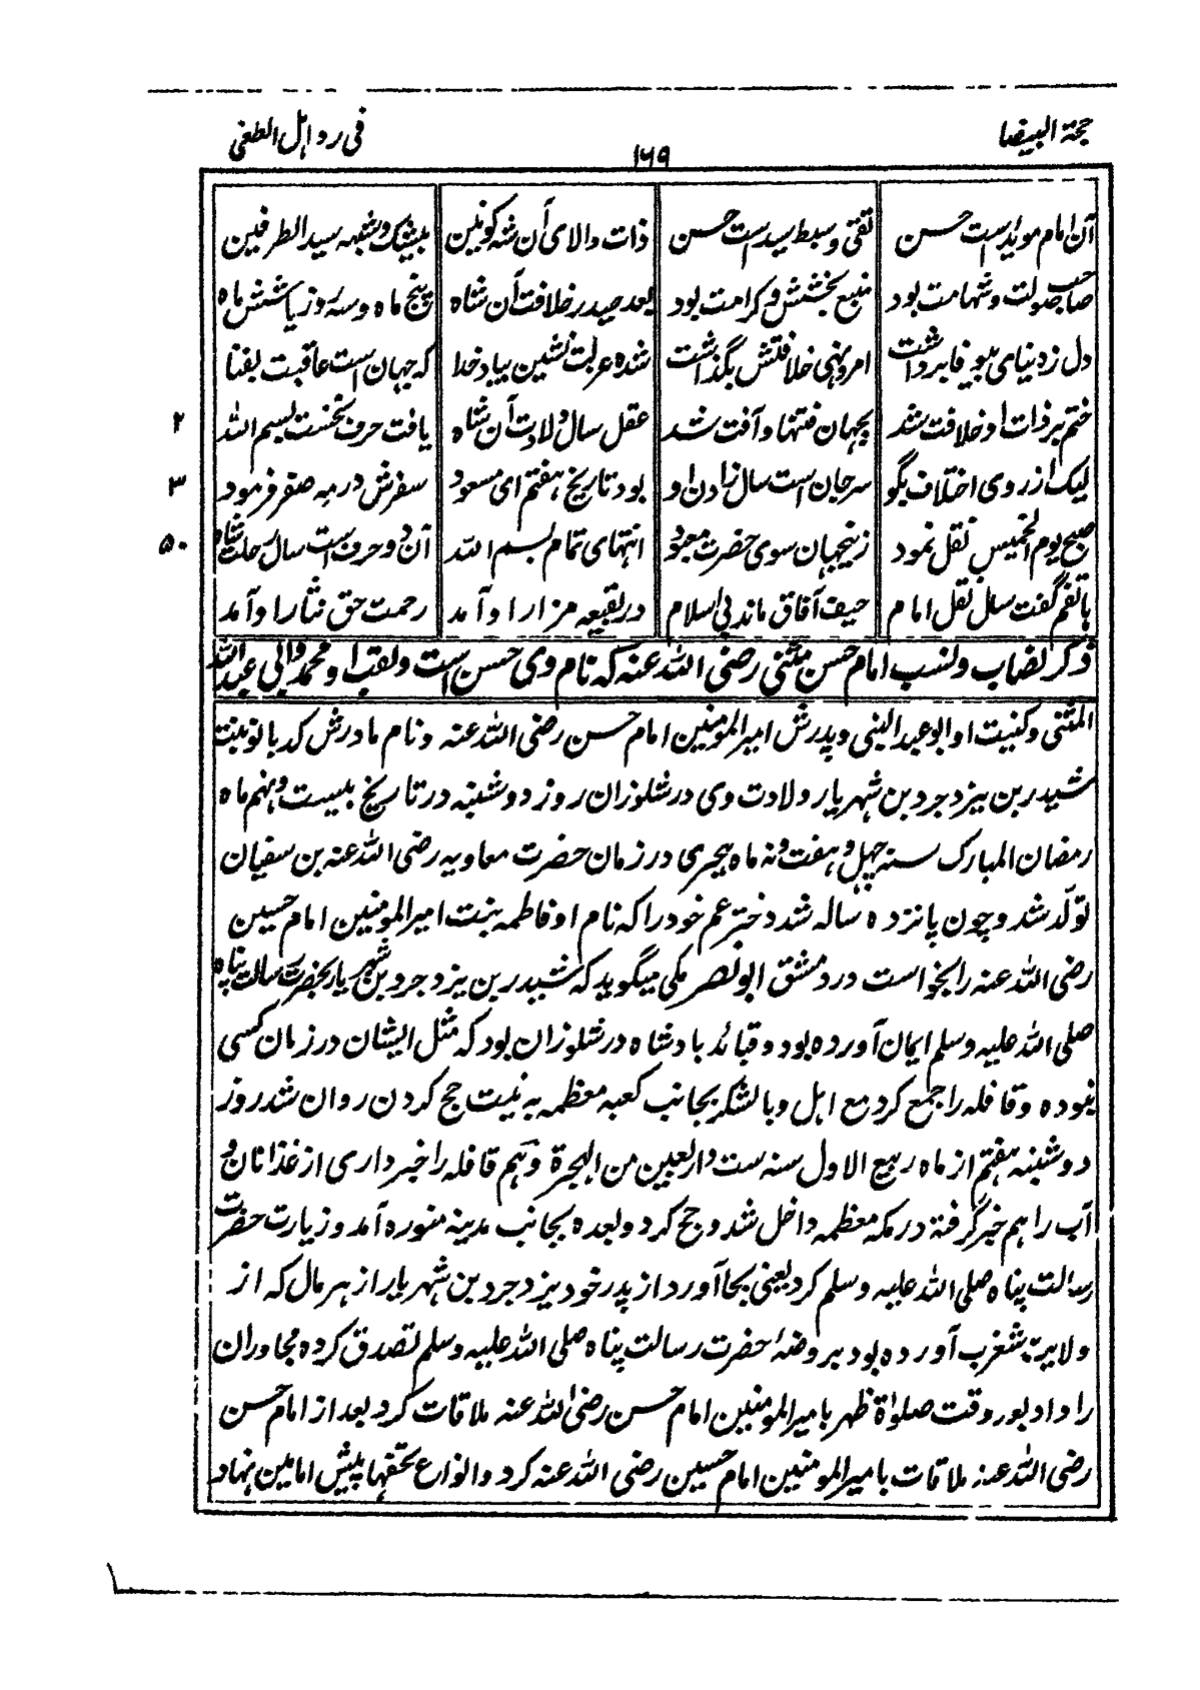 حجة البيضا
۱۶۹
فی رد اہل الطغی
آن امام موید است حسن تقی و سبط سید است حسن ذات والای آن شہ کونین بیشک و شبہہ سید الطرفین
صاحب صولت و شہامت بود منبع بخشش و کرامت بود بعد حیدر خلافت آن شاہ پنج ماہ و سہ روز یا شش ماہ
دل ز دنیای بیوفا برداشت امر و نہی خلافتش بگذاشت شدہ عزلت نشین بیاد خدا کہ جہان است عاقبت بفنا
ختم بر ذات او خلافت شد بجہان فتنہا و آفت شد عقل سال ولادت آن شاہ یافت حرف نخست بسم اللہ ۲
لیک از روی اختلاف بگو سر جان است سال زادن او بود تاریخ ہفتم ای مسعود سفرش در مہ صفر فرمود ۳
صبح یوم الخمیس نقل نمود زینجہان سوی حضرت معبود انتہای تمام بسم اللہ آن دو حرف است سال رحلت شاہ ۵۰
ہاتفم گفت سال نقل امام حیف آفاق ماند بی اسلام در بقیعہ مزار او آمد رحمت حق نثار او آمد
ذکر نصاب و نسب امام حسن مثنی رضی اللہ عنہ کہ نام وی حسن است و لقب او محمد والی عبد اللہ
المثنی و کنیت او ابو عبد النبی و پدرش امیر المومنین امام حسن رضی اللہ عنہ و نام مادرش کد بانو بنت
شیدر بن یزدجرد بن شہریار ولادت وی در شلوزان روز دوشنبہ در تاریخ بیست و نہم ماہ
رمضان المبارک سنہ چہل و ہفت و نہ ماہ ہجری در زمان حضرت معاویہ رضی اللہ عنہ بن سفیان
تولد شد و چون پانزدہ سالہ شد دختر عم خود را کہ نام او فاطمہ بنت امیر المومنین امام حسین
رضی اللہ عنہ را بخواست در دمشق ابو نصر مکی میگوید کہ شیدر بن یزدجرد بن شہریار بحضرت رسالت پناہ
صلی اللہ علیہ وسلم ایمان آوردہ بود و قبائد بادشاہ در شلوزان بود کہ مثل ایشان در زمان کسی
نبودہ و قافلہ را جمع کرد مع اہل و با لشکر بجانب کعبہ معظمہ بہ نیت حج کردن روان شد روز
دوشنبہ ہفتم از ماہ ربیع الاول سنہ ست واربعین من الہجرة و ہم قافلہ را خبرداری از غذا نان و
آب را ہم خبر گرفتہ در مکہ معظمہ داخل شد و حج کرد و بعدہ بجانب مدینہ منورہ آمد و زیارت حضرت
رسالت پناہ صلی اللہ علیہ وسلم کرد یعنی بجا آورد از پدر خود یزدجرد بن شہریار از ہر مال کہ از
ولایت شغرب آوردہ بود بروضۂ حضرت رسالت پناہ صلی اللہ علیہ وسلم تصدق کردہ مجاوران
را داد بوروقت صلوٰة ظہر با میر المومنین امام حسن رضی اللہ عنہ ملاقات کرد بعد از امام حسن
رضی اللہ عنہ ملاقات با میر المومنین امام حسین رضی اللہ عنہ کرد و انواع تحفہا پیش امامین نہاد